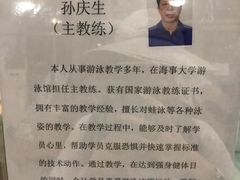 孙庆生
(主教练)
本人从事游泳教学多年，在海事大学游
泳馆担任主教练、获有国家游泳教练证书，
拥有丰富的教学经验，擅长对蛙泳等各种泳
姿的教学。在教学过程中，能够及时了解学
员心里，帮助学员克服恐惧并快速掌握标准
的技术动作。通过教学，在达到强身健体目